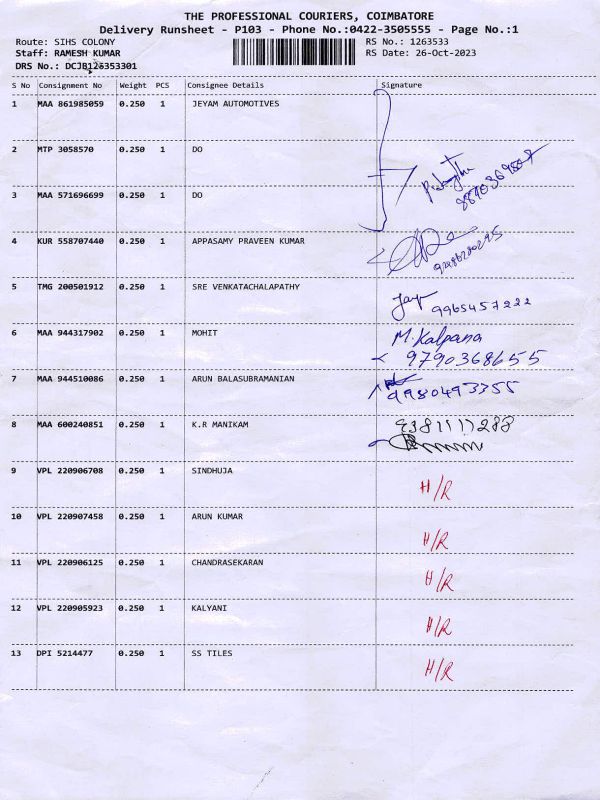 THE PROFESSIONAL COURIERS, COIMBATORE
Delivery Runsheet - P103 - Phone No.:0422-3505555 - Page No.:1
Route: SIHS COLONY RS No.: 1263533
Staff: RAMESH KUMAR RS Date: 26-Oct-2023
DRS No.: DCJB126353301
S No Consignment No Weight PCS Consignee Details Signature
1 MAA 861985059 0.250 1 JEYAM AUTOMOTIVES
2 MTP 3058570 0.250 1 DO
3 MAA 571696699 0.250 1 DO
4 KUR 558707440 0.250 1 APPASAMY PRAVEEN KUMAR
5 TMG 200501912 0.250 1 SRE VENKATACHALAPATHY
9965457222
6 MAA 944317902 0.250 1 MOHIT M. Kalpana
9790368655
7 MAA 944510086 0.250 1 ARUN BALASUBRAMANIAN
9980493355
8 MAA 600240851 0.250 1 K.R MANIKAM
9 VPL 220906708 0.250 1 SINDHUJA H/R
10 VPL 220907458 0.250 1 ARUN KUMAR H/R
11 VPL 220906125 0.250 1 CHANDRASEKARAN H/R
12 VPL 220905923 0.250 1 KALYANI H/R
13 DPI 5214477 0.250 1 SS TILES H/R